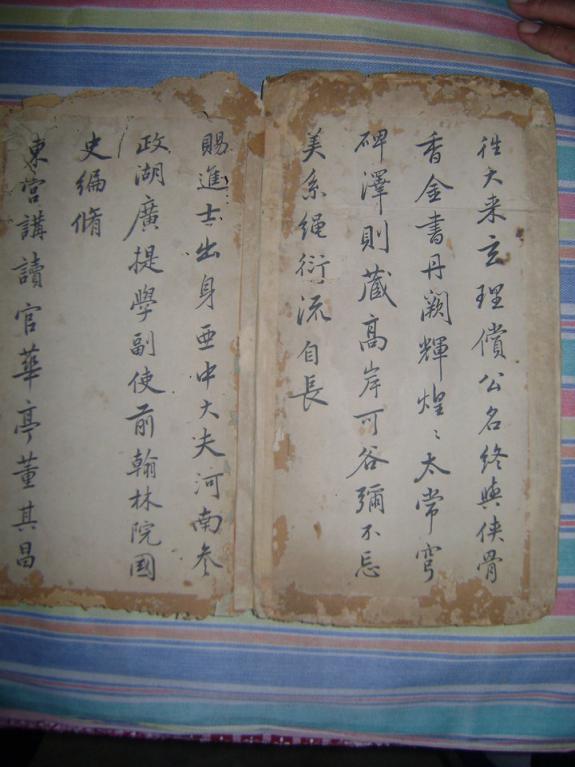 往大来玄理償公名終與俠骨
香金書丹闕輝煌〻太常穹
碑澤則蔵高岸可谷彌不忘
美系绳衍流自長
賜進士出身亜中大夫河南叅
政湖廣提學副使前翰林院國
史编脩
東宫講讀官華亭董其昌